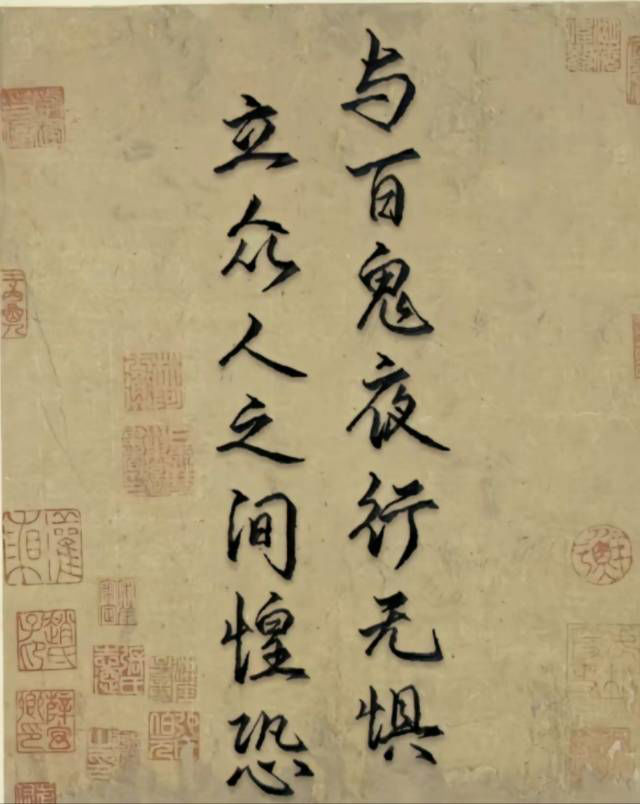 与百鬼夜行无惧
立众人之间惶恐